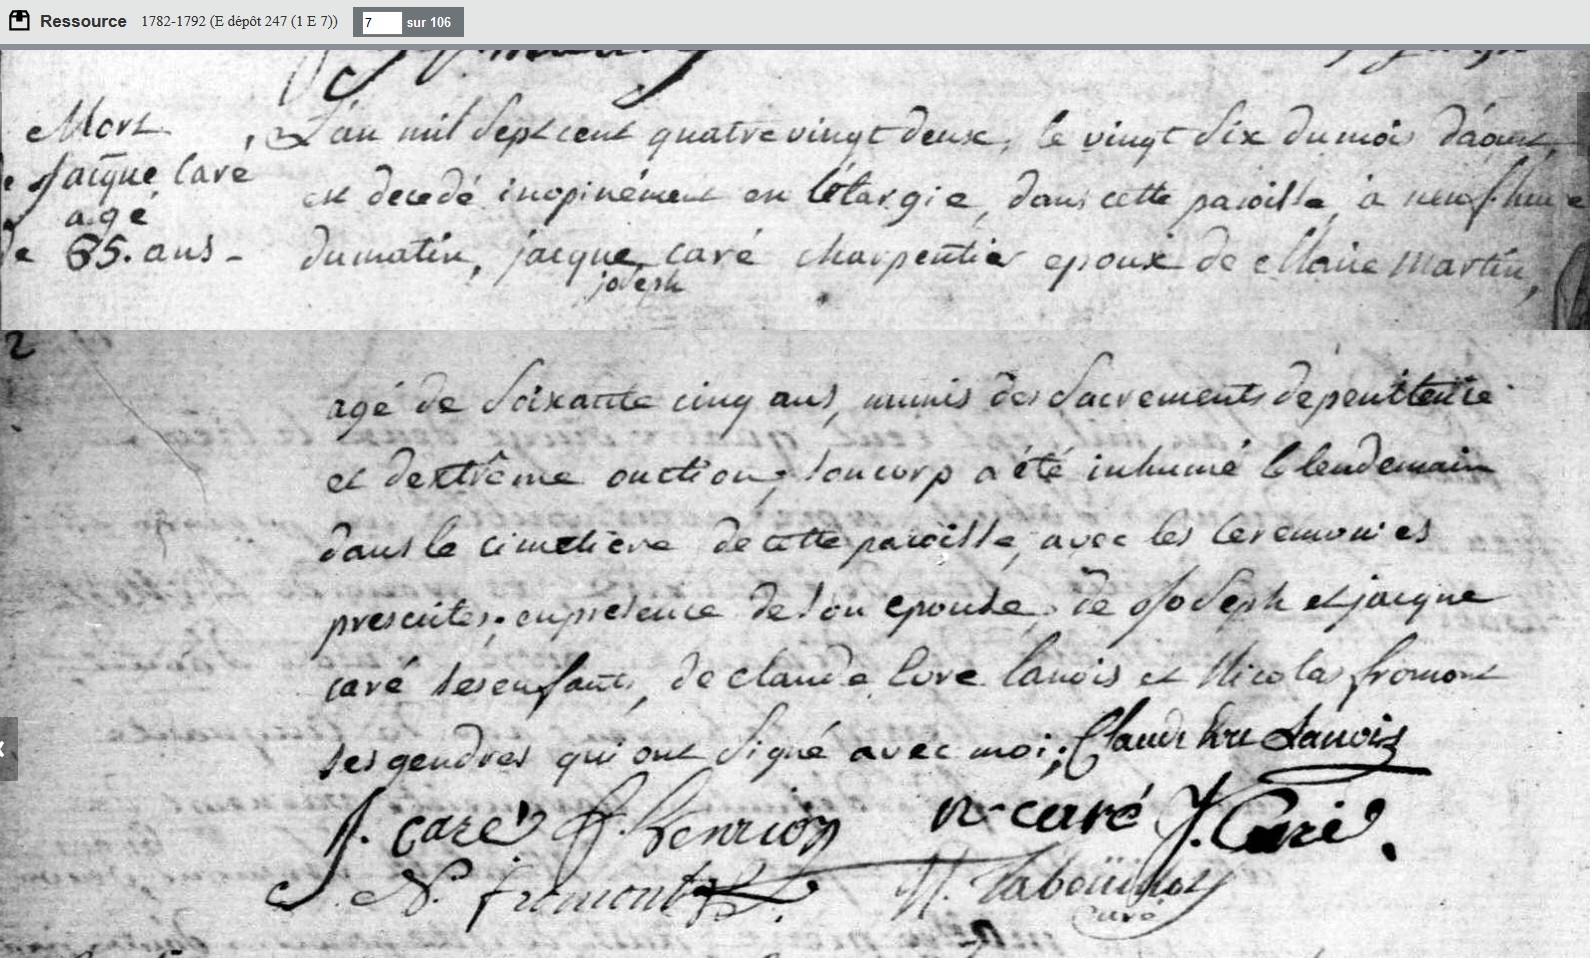 Ressource 1782-1792 (E dépôt 247 (1 E 7)) 7 sur 106
Mort
de jacque Caré
agé
de 65. ans -
L'an mil sept cent quatre vingt deux, le vingt six du mois d'aoust,
est decedé inopinément en létargie, dans cette paroisse, à neuf heure
du matin, jacque caré charpentier epoux de Marie Martin,
joseph
2
agé de soixante cinq ans, munis des sacrements de penitence
et dextrême onction, son corp a été inhumé le lendemain
dans le cimetiere de cette paroisse, avec les ceremonies
prescrites, en presence de son epouse, de Joseph et jacque
caré ses enfants, de claude Core Lanois et Nicolas fromont
ses gendres qui ont signé avec moi; Claude Lanois
J. caré F. henrion n caré J. Caré.
N. fromont N. 
curé